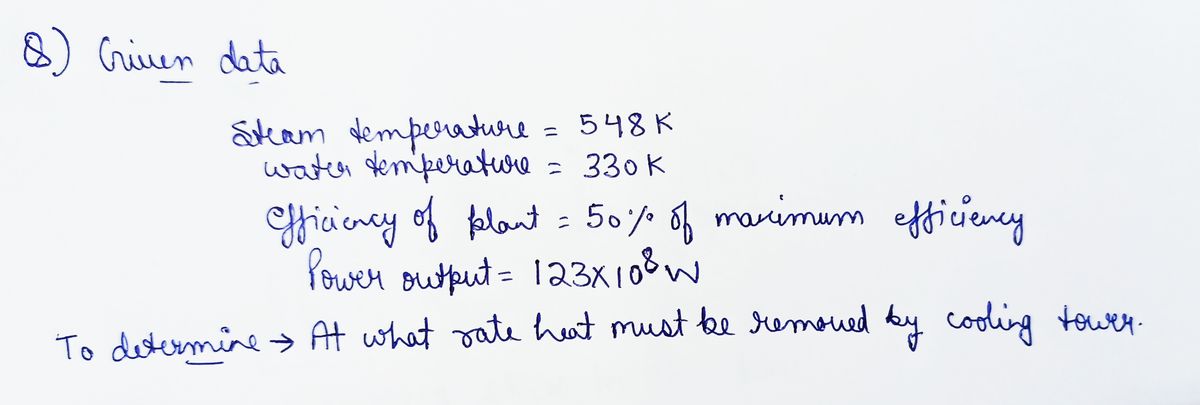 Q) Given data
Steam temperature = 548 K
water temperature = 330 K
Efficiency of plant = 50% of maximum efficiency
Power output = 123×10⁸ W
To determine → At what rate heat must be removed by cooling tower.